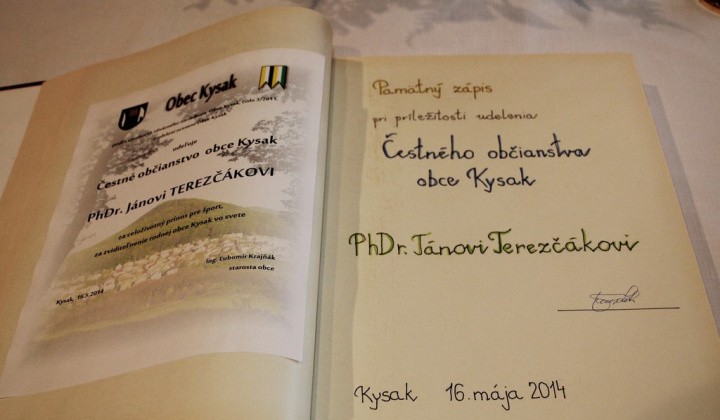 Obec Kysak
udeľuje
Čestné občianstvo obce Kysak
PhDr. Jánovi TEREZČÁKOVI
za celoživotný prínos pre šport,
za zviditeľnenie rodnej obce Kysak vo svete
Ing. Ľubomír Krajňák
starosta obce
Kysak, 16.5.2014
Pamätný zápis
pri príležitosti udelenia
Čestného občianstva
obce Kysak
PhDr. Jánovi Terezčákovi
Kysak 16. mája 2014